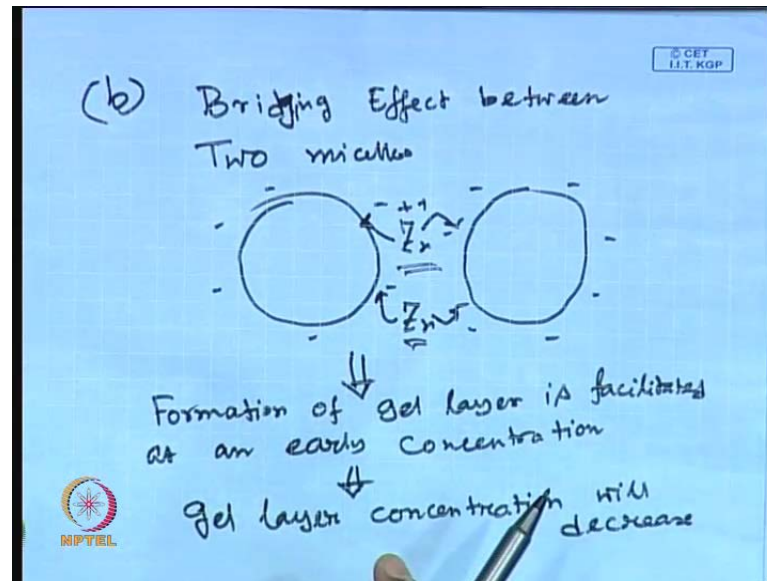 © CET
I.I.T. KGP
(b) Bridging Effect between
Two micelles
- - - -
- - ++ - -
Zn
- - - -
Zn
- - -
⇓
Formation of gel layer is facilitated
at an early concentration
⇓
gel layer concentration will
decrease
NPTEL